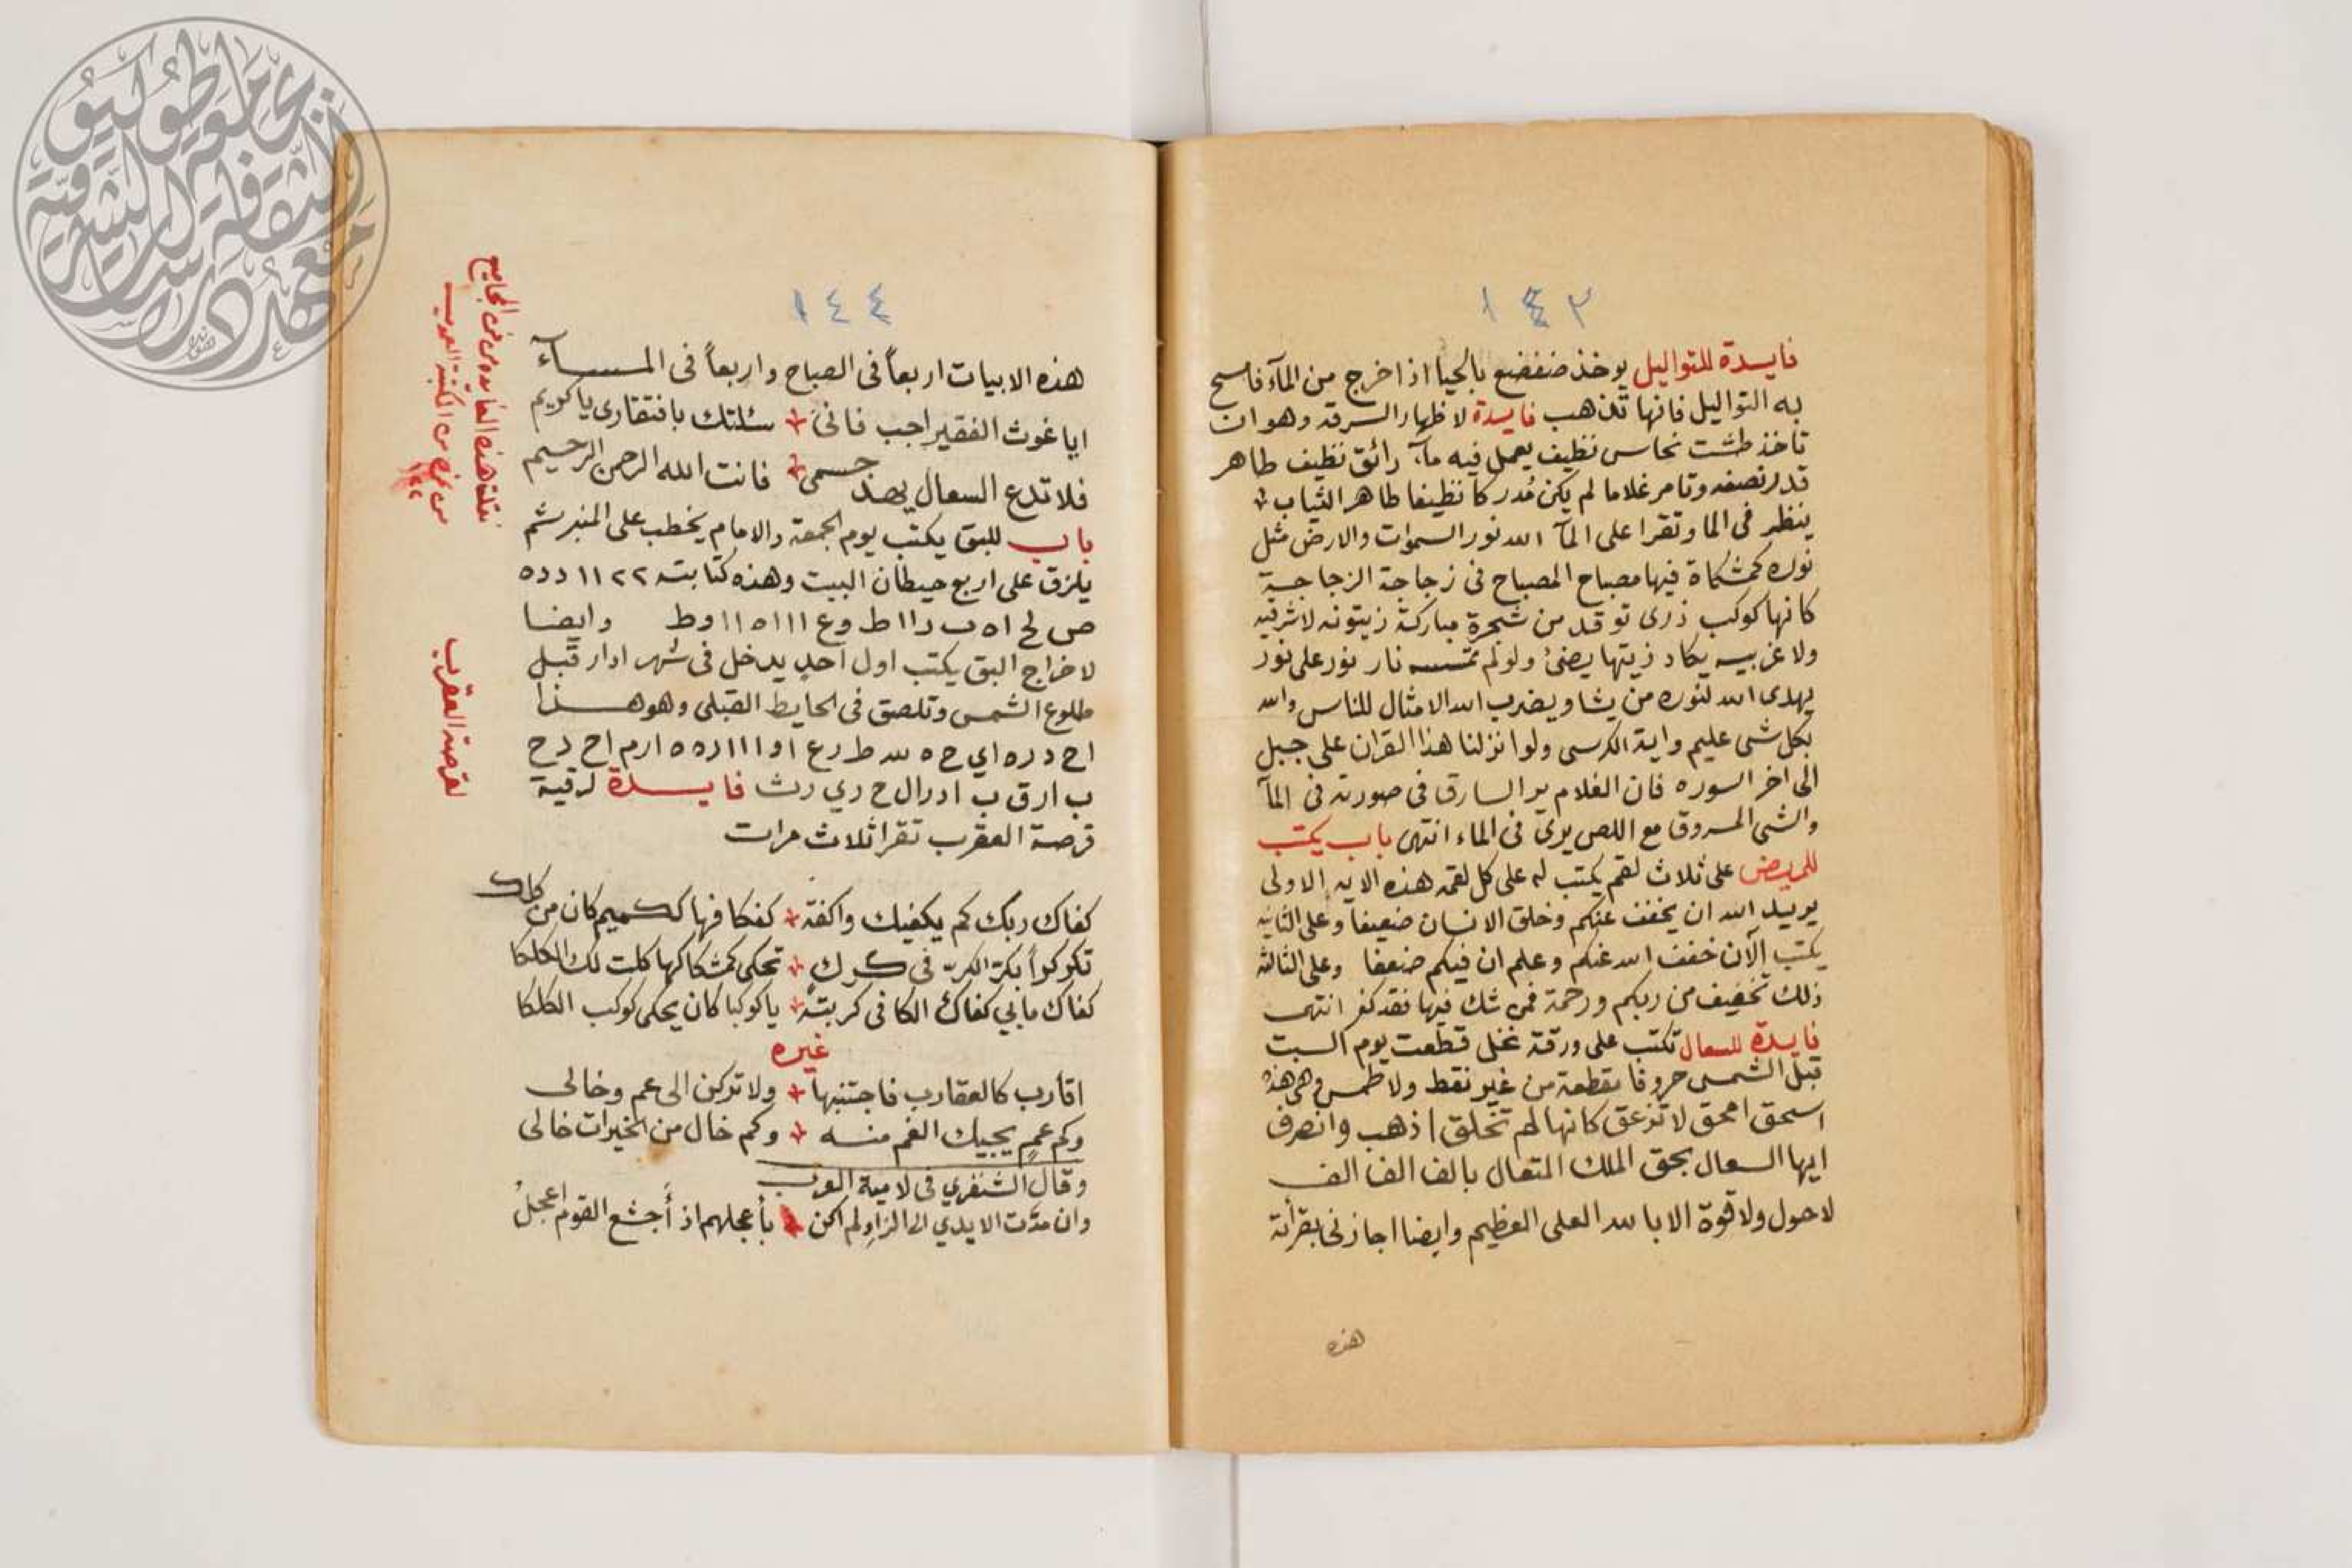 ١٤٣
فايسدة للتواليل يوخذ ضفضع بالحيا اذا خرج من المآء فامسح
به التواليل فانها تذهب فايسدة لاظهار السرقه وهو ان
تاخذ طشت نحاس نظيف يعمل فيه مآء رائق نظيف طاهر
قدر نصفه وتامر غلاما لم يكن مُدركا نظيفا طاهر الثياب
ينظر فى الما وتقرا على المآ الله نور السموات والارض مثل
نوره كمشكاة فيها مصباح المصباح فى زجاجة الزجاجة
كانها كوكب درى توقد من شجرة مباركة زيتونه لا شرقيه
ولا غربيه يكاد زيتها يضئ ولو لم تمسسه نار نور على نور
يهدى الله لنوره من يشا ويضرب الله الامثال للناس والله
بكل شى عليم واية الكرسى ولو انزلنا هذا القران على جبل
الى اخر السوره فان الغلام ير السارق فى صورته فى المآ
والشى المسروق مع اللص يرى فى الماء انتهى باب يكتب
للمريض على ثلاث لقم يكتب له على كل لقمه هذه الايه الاولى
يريد الله ان يخفف عنكم وخلق الانسان ضعيفا وعلى الثانيه
يكتب الآن خفف الله عنكم وعلم ان فيكم ضعفا وعلى الثالثه
ذلك تخفيف من ربكم ورحمة فمن شك فيها فقد كفر انتهى
فايدة للسعال تكتب على ورقة قطعت يوم السبت
قبل الشمس حروفا مقطعة من غير نقط ولا طمس وهى هذه
اسحق امحق لا تزعق كانها لم تخلق اذهب وانصرف
ايها السعال بحق الملك المتعال بالف الف الف
لا حول ولا قوة الا بالله العلى العظيم وايضا اجازنى بقرأئة
هذه
١٤٤
هذه الابيات اربعاً فى الصباح واربعاً فى المسآء
ايا غوث الفقير اجب فانى سئلتك بافتقارى يا كريم
فلا تدع السعال بهذ جسمى فانت الله الرحمن الرحيم
باب للبق يكتب يوم الجمعة والامام يخطب على المنبر ثم
يلزق على اربع حيطان البيت وهذه كتابته ٢٢ ١١ د د ه
وايضا
لاخراج البق يكتب اول احد يدخل فى شهر ادار قبل
طلوع الشمس وتلصق فى الحايط القبلى وهو هذا
فايسدة لرقية
قرصة العقرب تقرا ثلاث مرات
كفاك ربك كم يكفيك واكفة كفكافها ككميم كان من كلك
تكر كراً بكر الكرّ فى كرك تحكى كمشكا كها كلت لك الكلكا
كفاك ما بي كفاك الكافى كربته يا كوكبا كان يحكى كوكب الكلكا
غيره
اقارب كالعقارب فاجتنبها ولا تركن الى عم وخالى
وكم عمٍ يجيك الغم منه وكم خال من الخيرات خالى
وقال الشنفري فى لامية العرب
وان مدّت الايدي الى الزاد لم اكن بأعجلهم اذ أجشع القوم اعجلُ
لقرصة العقرب